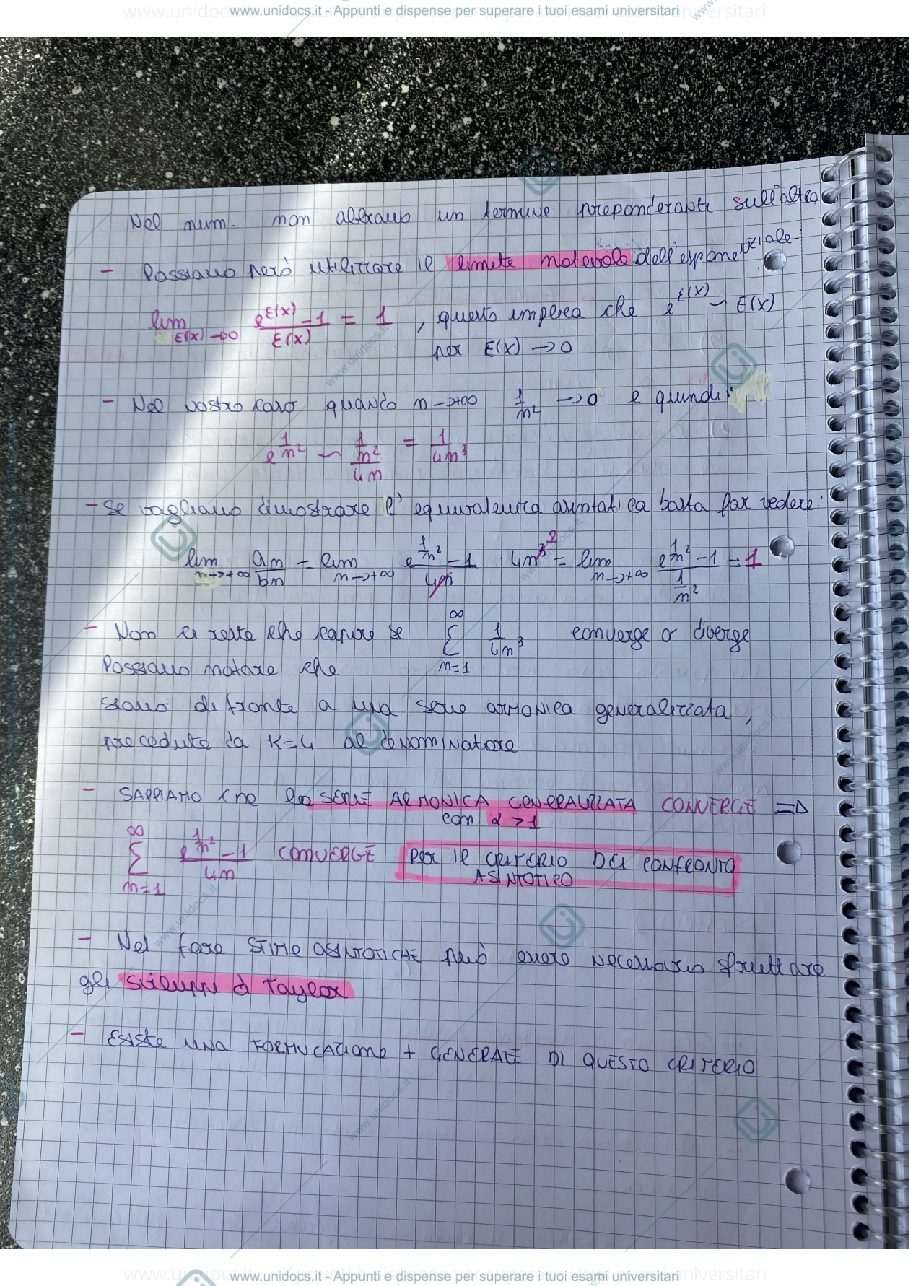 www.unidocs.it - Appunti e dispense per superare i tuoi esami universitari
Nel num. non abbiamo un termine preponderante sull'altro
- Possiamo però utilizzare il limite notevole dell'esponenziale:
lim E(x)→0 e^E(x) - 1 / E(x) = 1 , questo implica che e^E(x) ~ E(x)
per E(x) → 0
- Nel nostro caso quando n→+∞ 1/n² →0 e quindi:
e^1/n² ~ 1/n² / 4n = 1/4n³
- Se vogliamo dimostrare l'equivalenza asintotica basta far vedere:
lim n→+∞ an/bn = lim n→+∞ e^1/n² - 1 / 4n · 4n³ ² = lim n→+∞ e^1/n² - 1 / 1/n² = 1
- Non ci resta che capire se ∞ Σ n=1 1/4n³ converge o diverge
Possiamo notare che
siamo di fronte a una serie armonica generalizzata,
preceduta da K=4 al denominatore
- SAPPIAMO che la SERIE ARMONICA GENERALIZZATA CONVERGE =>
con α > 1
∞ Σ n=1 e^1/n² - 1 / 4n CONVERGE PER IL CRITERIO DEL CONFRONTO
ASINTOTICO
- Nel fare STIME ASINTOTICHE può essere necessario sfruttare
gli sviluppi di Taylor
- Esiste UNA FORMULAZIONE + GENERALE DI QUESTO CRITERIO
www.unidocs.it - Appunti e dispense per superare i tuoi esami universitari